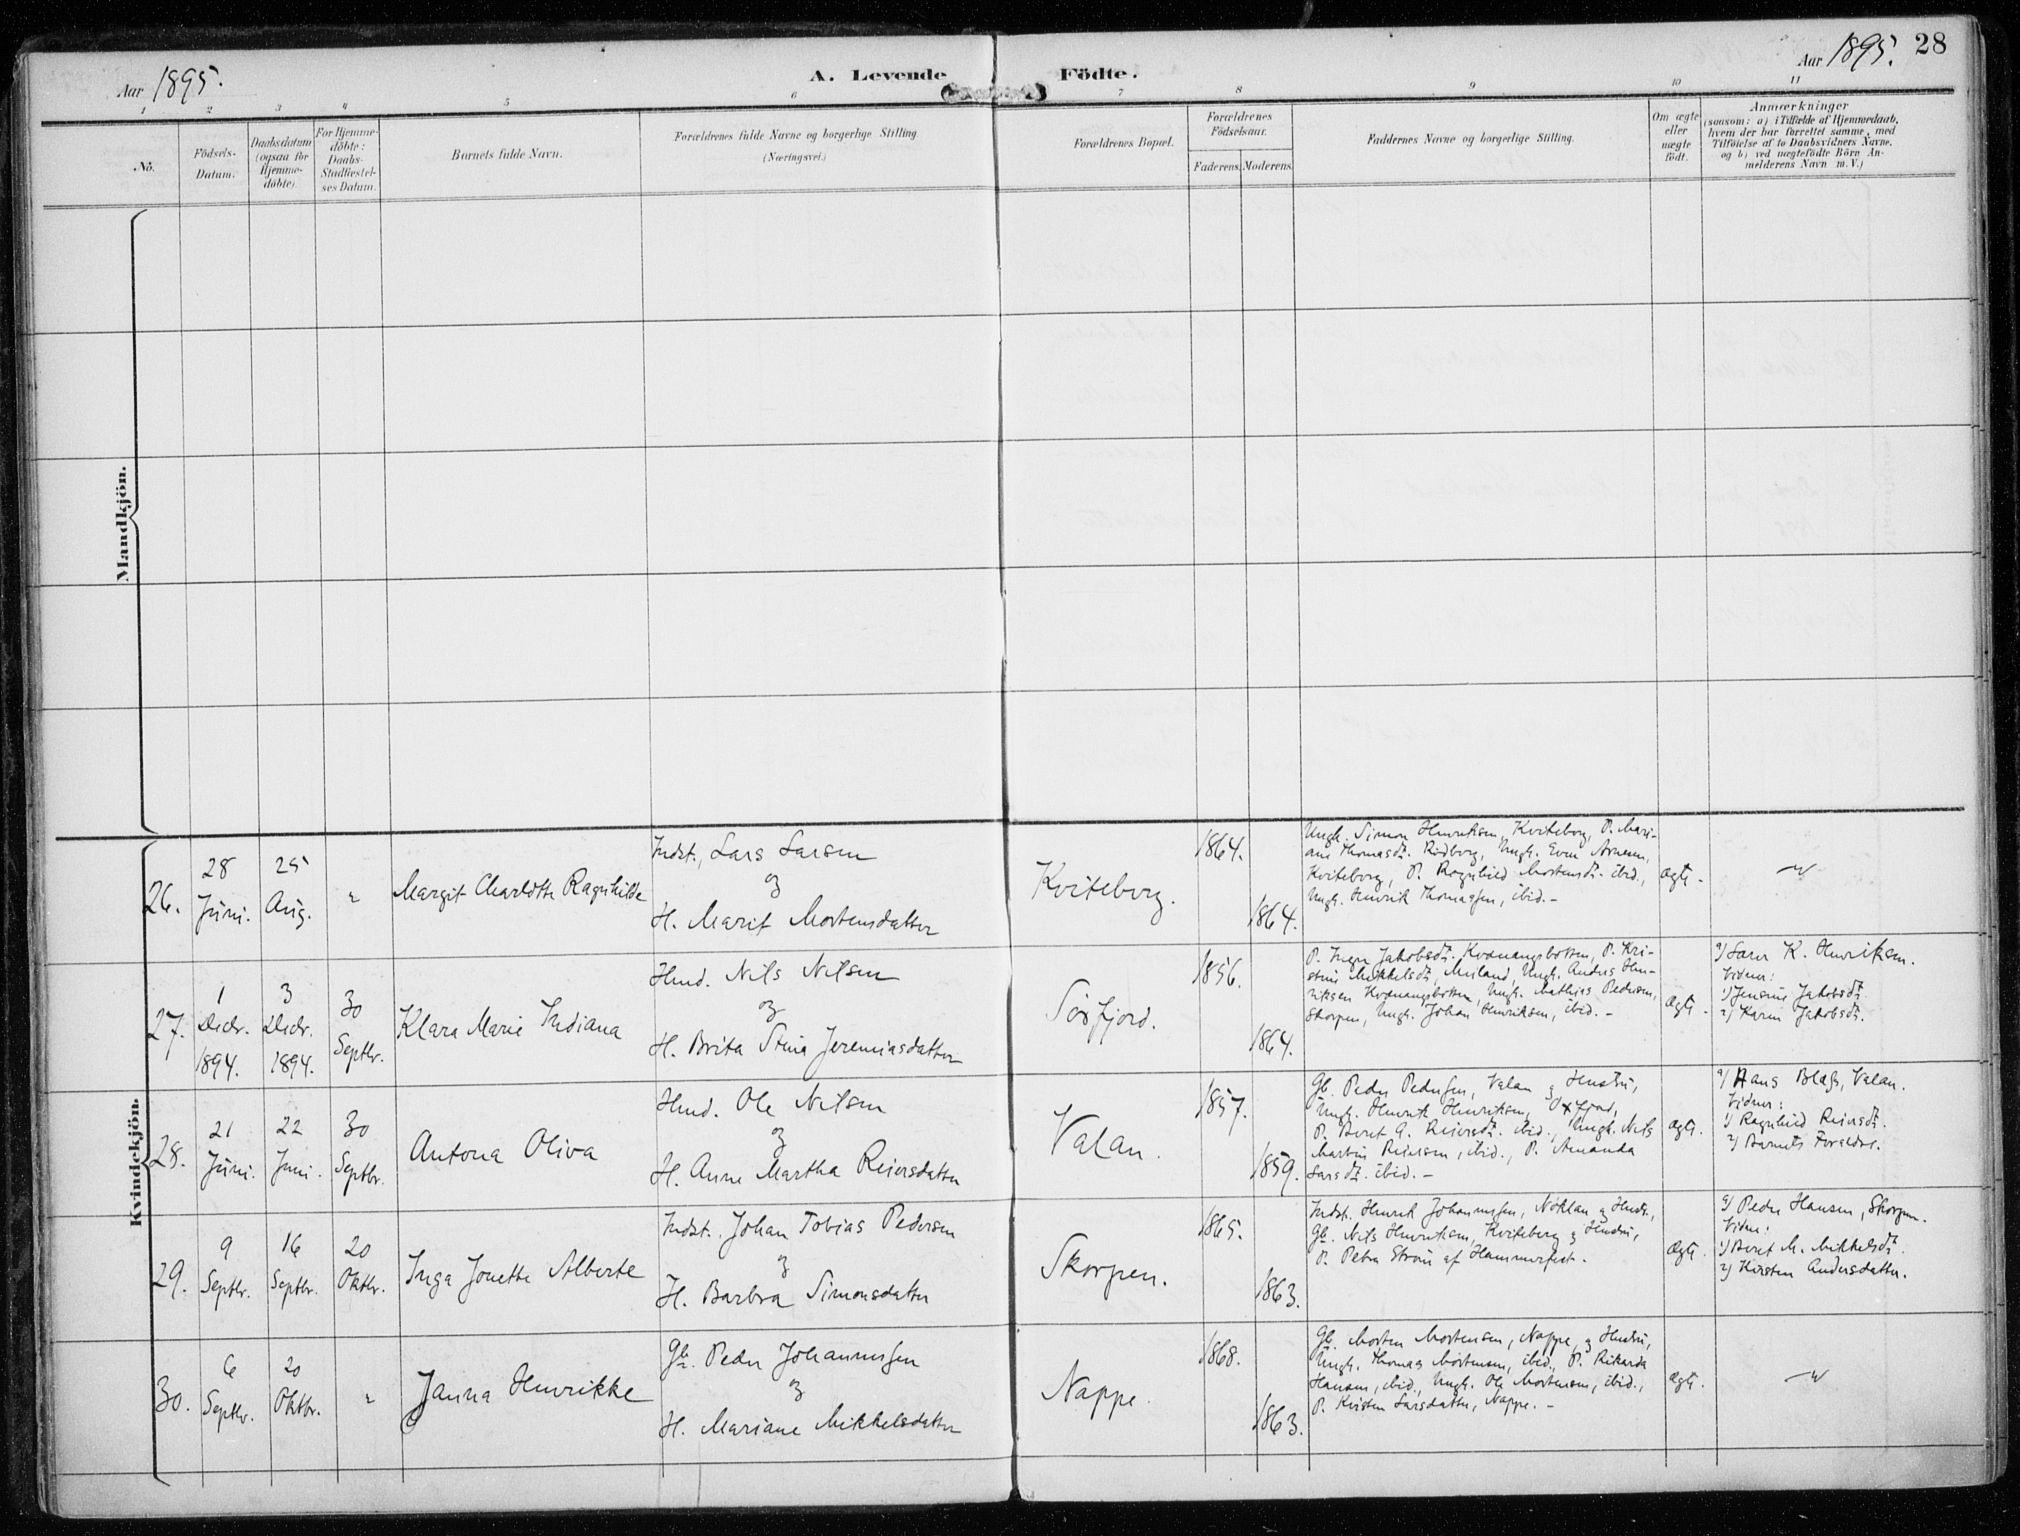 Aar 1895.
A. Levende Födte.
Aar 1895. 28
1 2 3 4 5 6 7 8 9 10 11
No.
Födsels-
Datum.
Daabsdatum
(ogsaa for
Hjemme-
döbte)
For Hjemme-
döbte:
Daabs-
Stadfæstel-
ses Datum.
Barnets fulde Navn.
Forældrenes fulde Navne og borgerlige Stilling
(Næringsvei.)
Forældrenes Bopæl.
Forældrenes
Födselsaar.
Faderens. Moderens.
Faddernes Navne og borgerlige Stilling.
Om ægte
eller
uægte
født.
Anmærkninger
(saasom: a) i Tilfælde af Hjemmedaab,
hvem der har forrettet samme, med
Tilföielse af to Daabsvidners Navne,
og b) ved uægtefödte Börn An-
melderens Navn m. V.)
Mandkjön.
Kvindekjön.
26.
28
Juni.
25
Aug.
"
Margit Charlotte Ragnhilde
Indst. Lars Larsen
og
H. Marit Mortensdatter
Kviteberg.
1864.
1864.
Ungk. Simon Henriksen, Kviteberg, P. Mari-
ane Thomasdt. Rødberg, Ungk. Even Arnesen,
Kviteberg, P. Ragnhild Mortensdt. ibid.,
Ungk. Henrik Thomassen, ibid. –
ægte.
"
27.
1
Decbr.
1894.
3
Decbr.
1894.
30
Septbr.
Klara Marie Indiana
Hmd. Nils Nilsen
og
H. Brita Stina Jeremiasdatter
Sørfjord.
1856.
1864.
P. Inger Jakobsdt. Kvænangsbotten, P. Kri-
stine Mikkelsdt, Meiland, Ungk. Anders Hen-
riksen Kvænangsbotten, Ungk. Mathias Pedersen,
Skorpen, Ungk. Johan Henriksen, ibid. –
ægte.
a) Lars K. Henriksen.
Vidner:
1) Jensine Jakobsdt.
2) Karen Jakobsdt.
28.
21
Juni.
22
Juni.
30
Septbr.
Antona Oliva
Hmd. Ole Nilsen
og
H. Anne Martha Reiersdatter
Valan.
1857.
1859.
Gb. Peder Pedersen, Valan og Hustru,
Ungk. Henrik Henriksen, Oxfjord,
P. Beret A. Reiersdt. ibid., Ungk. Nils
Martin Reiersen, ibid., P. Amanda
Larsdt. ibid. –
ægte.
a) Hans Blasse, Valan.
Vidner:
1) Ragnhild Reiersdt.
2) Barnets Forældre.
29.
9
Septbr.
16
Septbr.
20
Oktbr.
Inga Jonette Alberte
Indst. Johan Tobias Pedersen
og
H. Barbra Simonsdatter
Skorpen.
1865.
1863.
Indst. Henrik Johannessen, Nøklan og Hustr.,
Gb. Nils Henriksen, Kviteberg og Hustru,
P. Petra Strøm af Hammerfest. –
ægte.
a) Peder Hansen, Skorpen.
Vidner:
1) Beret M. Mikkelsdt.
2) Kirsten Andersdatter.
30.
6
Septbr.
20
Oktbr.
"
Janna Henrikke
Gb. Peder Johannessen
og
H. Mariane Mikkelsdatter
Nappe.
1868.
1863.
Gb. Morten Mortensen, Nappe, og Hustru,
Ungk. Thomas Mortensen, ibid., P. Rikarda
Hansen, ibid., Ungk. Ole Mortensen, ibid.,
P. Kirsten Larsdatter, Nappe. –
ægte.
"